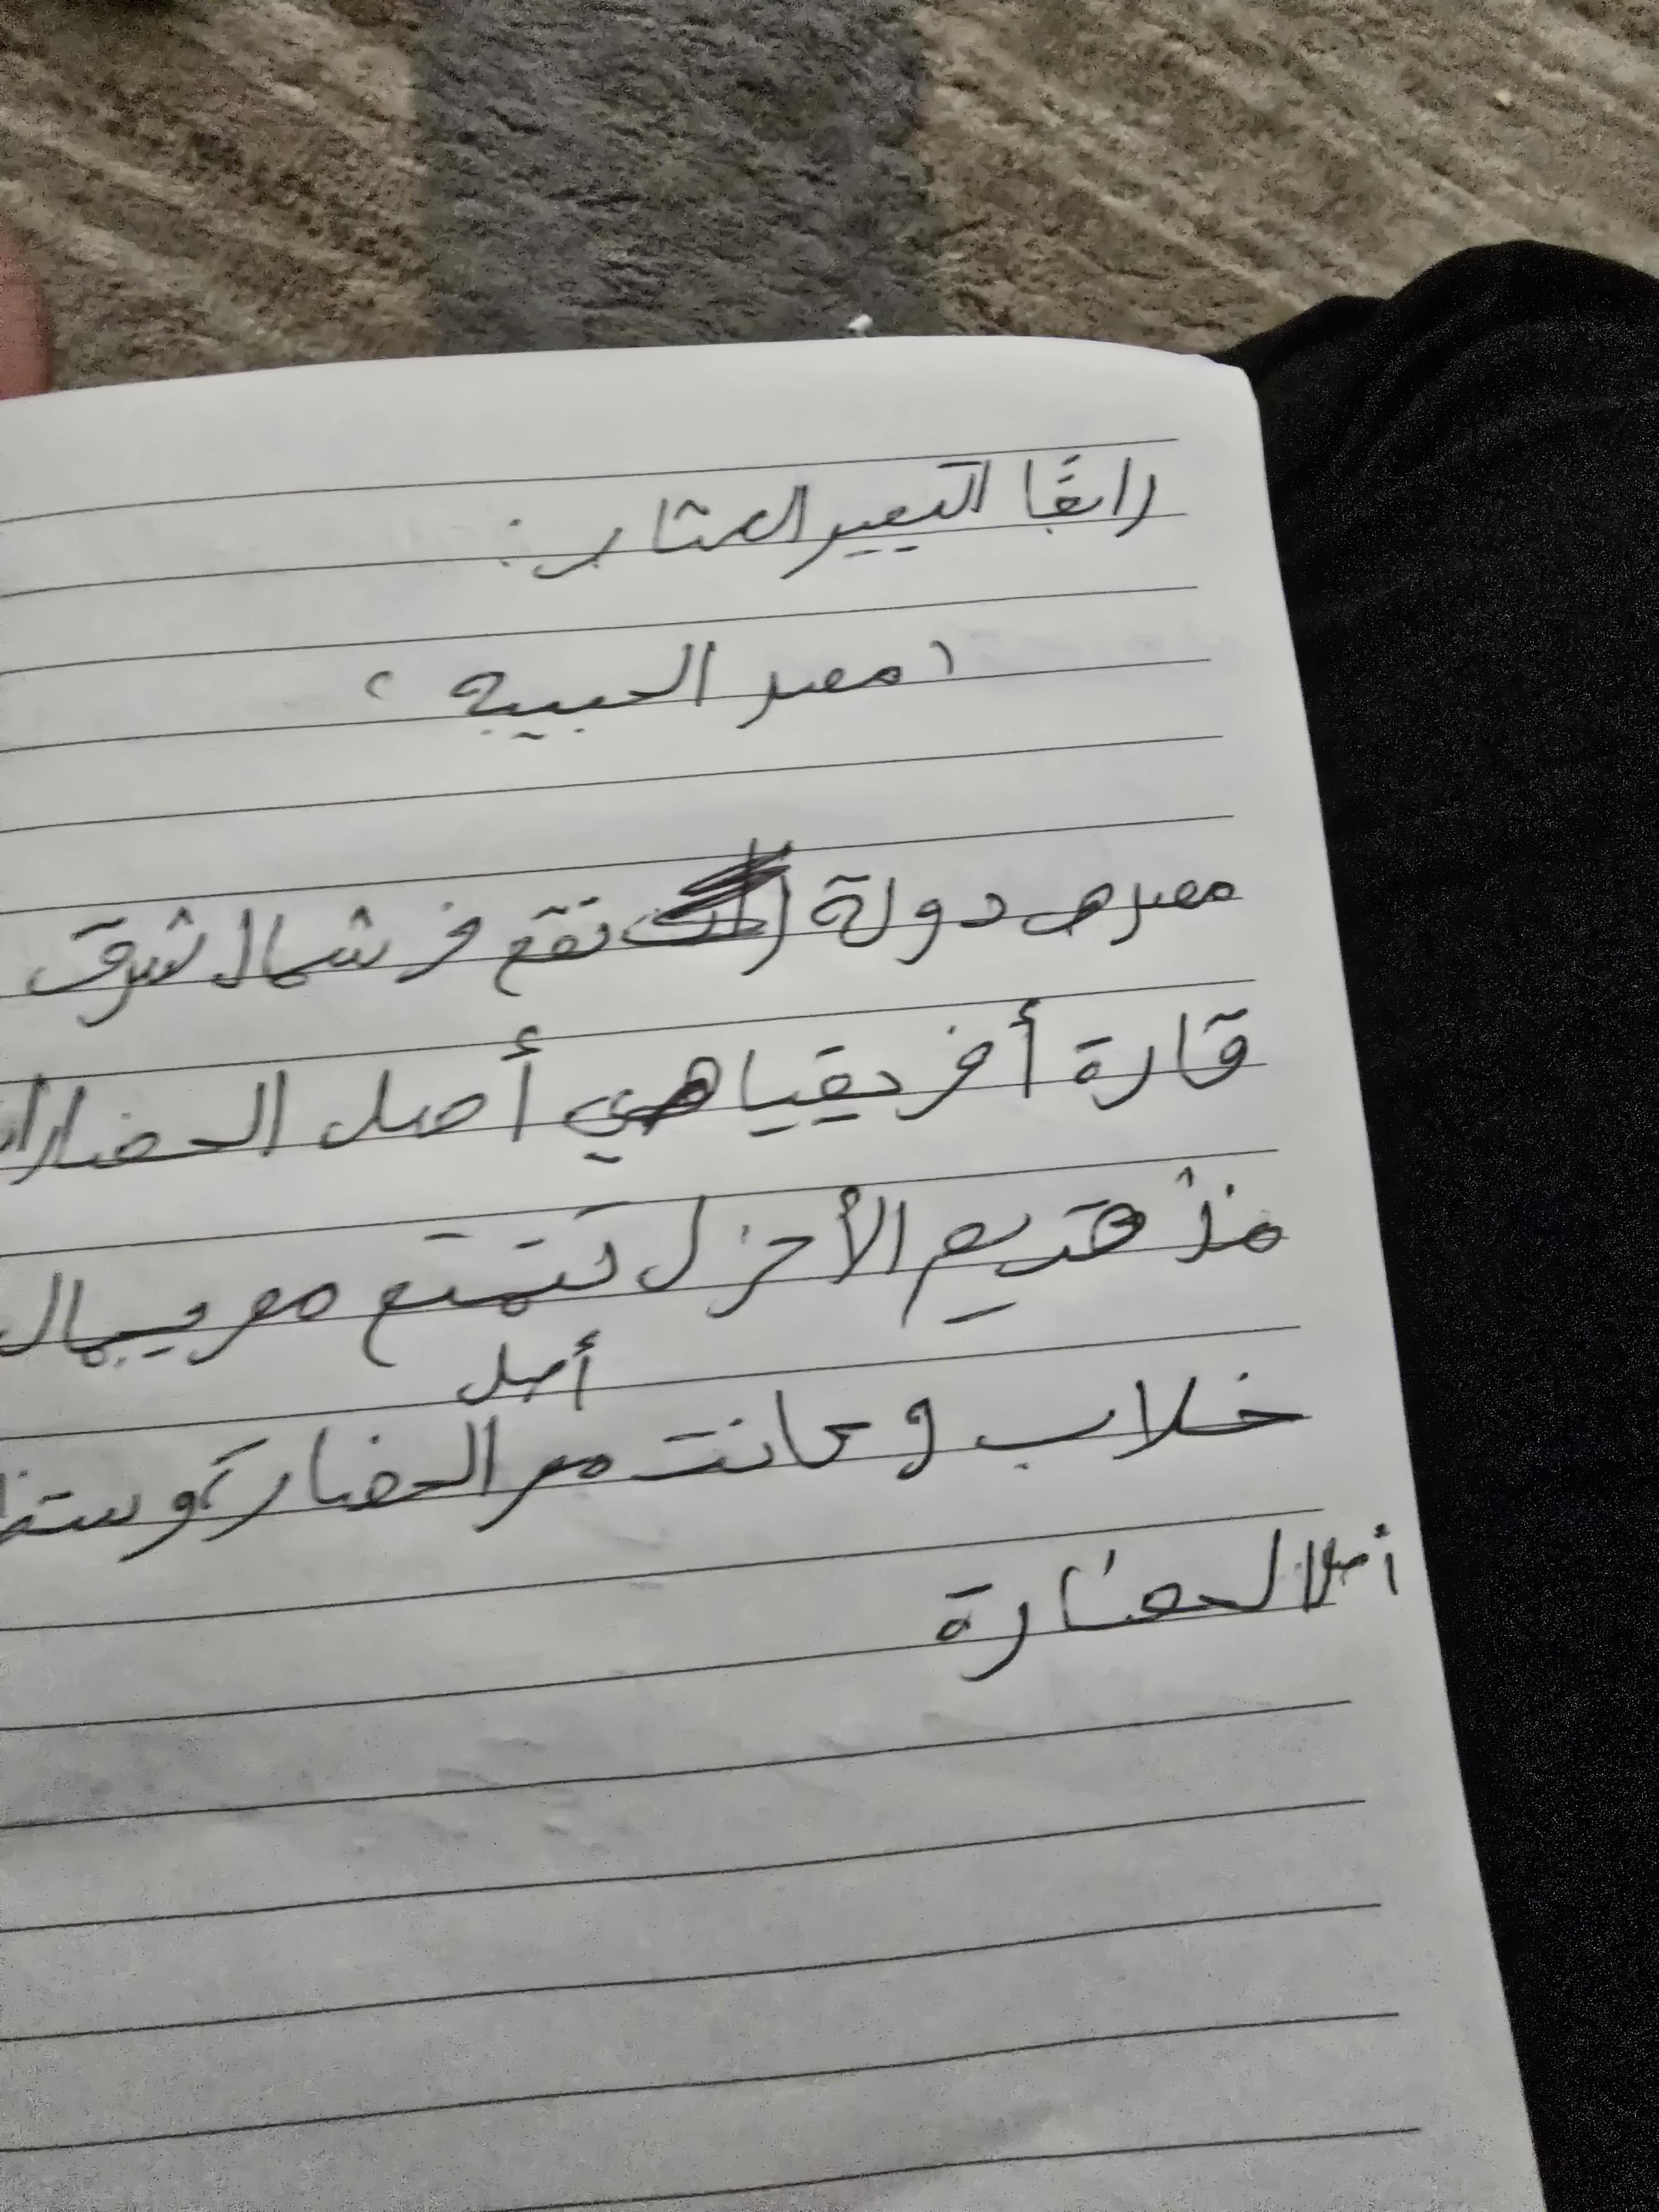 رابعًا التعبير المختار:
(مصر الحبيبة)
مصر هى دولة تقع فى شمال شرق
قارة أفريقيا هي أصل الحضارات
منذُ قديم الأزل تتمتع مصر بجمال
أصل
خلاب و كانت مصر الحضارة وستظل
أصل الحضارة